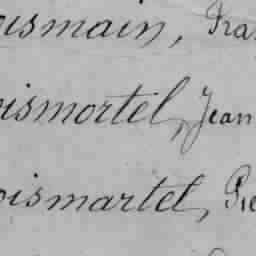 oismain, Fra
oismortel, Jean
oismartel, Pie